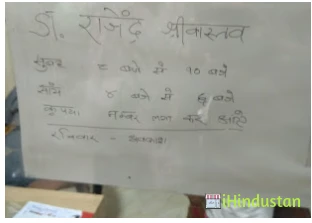 डॉ. राजेंद्र श्रीवास्तव
सुबह ८ बजे से १० बजे
साँय ४ बजे से ६ बजे
कृपया नम्बर लगा कर
रविवार - अवकाश
iHindustan